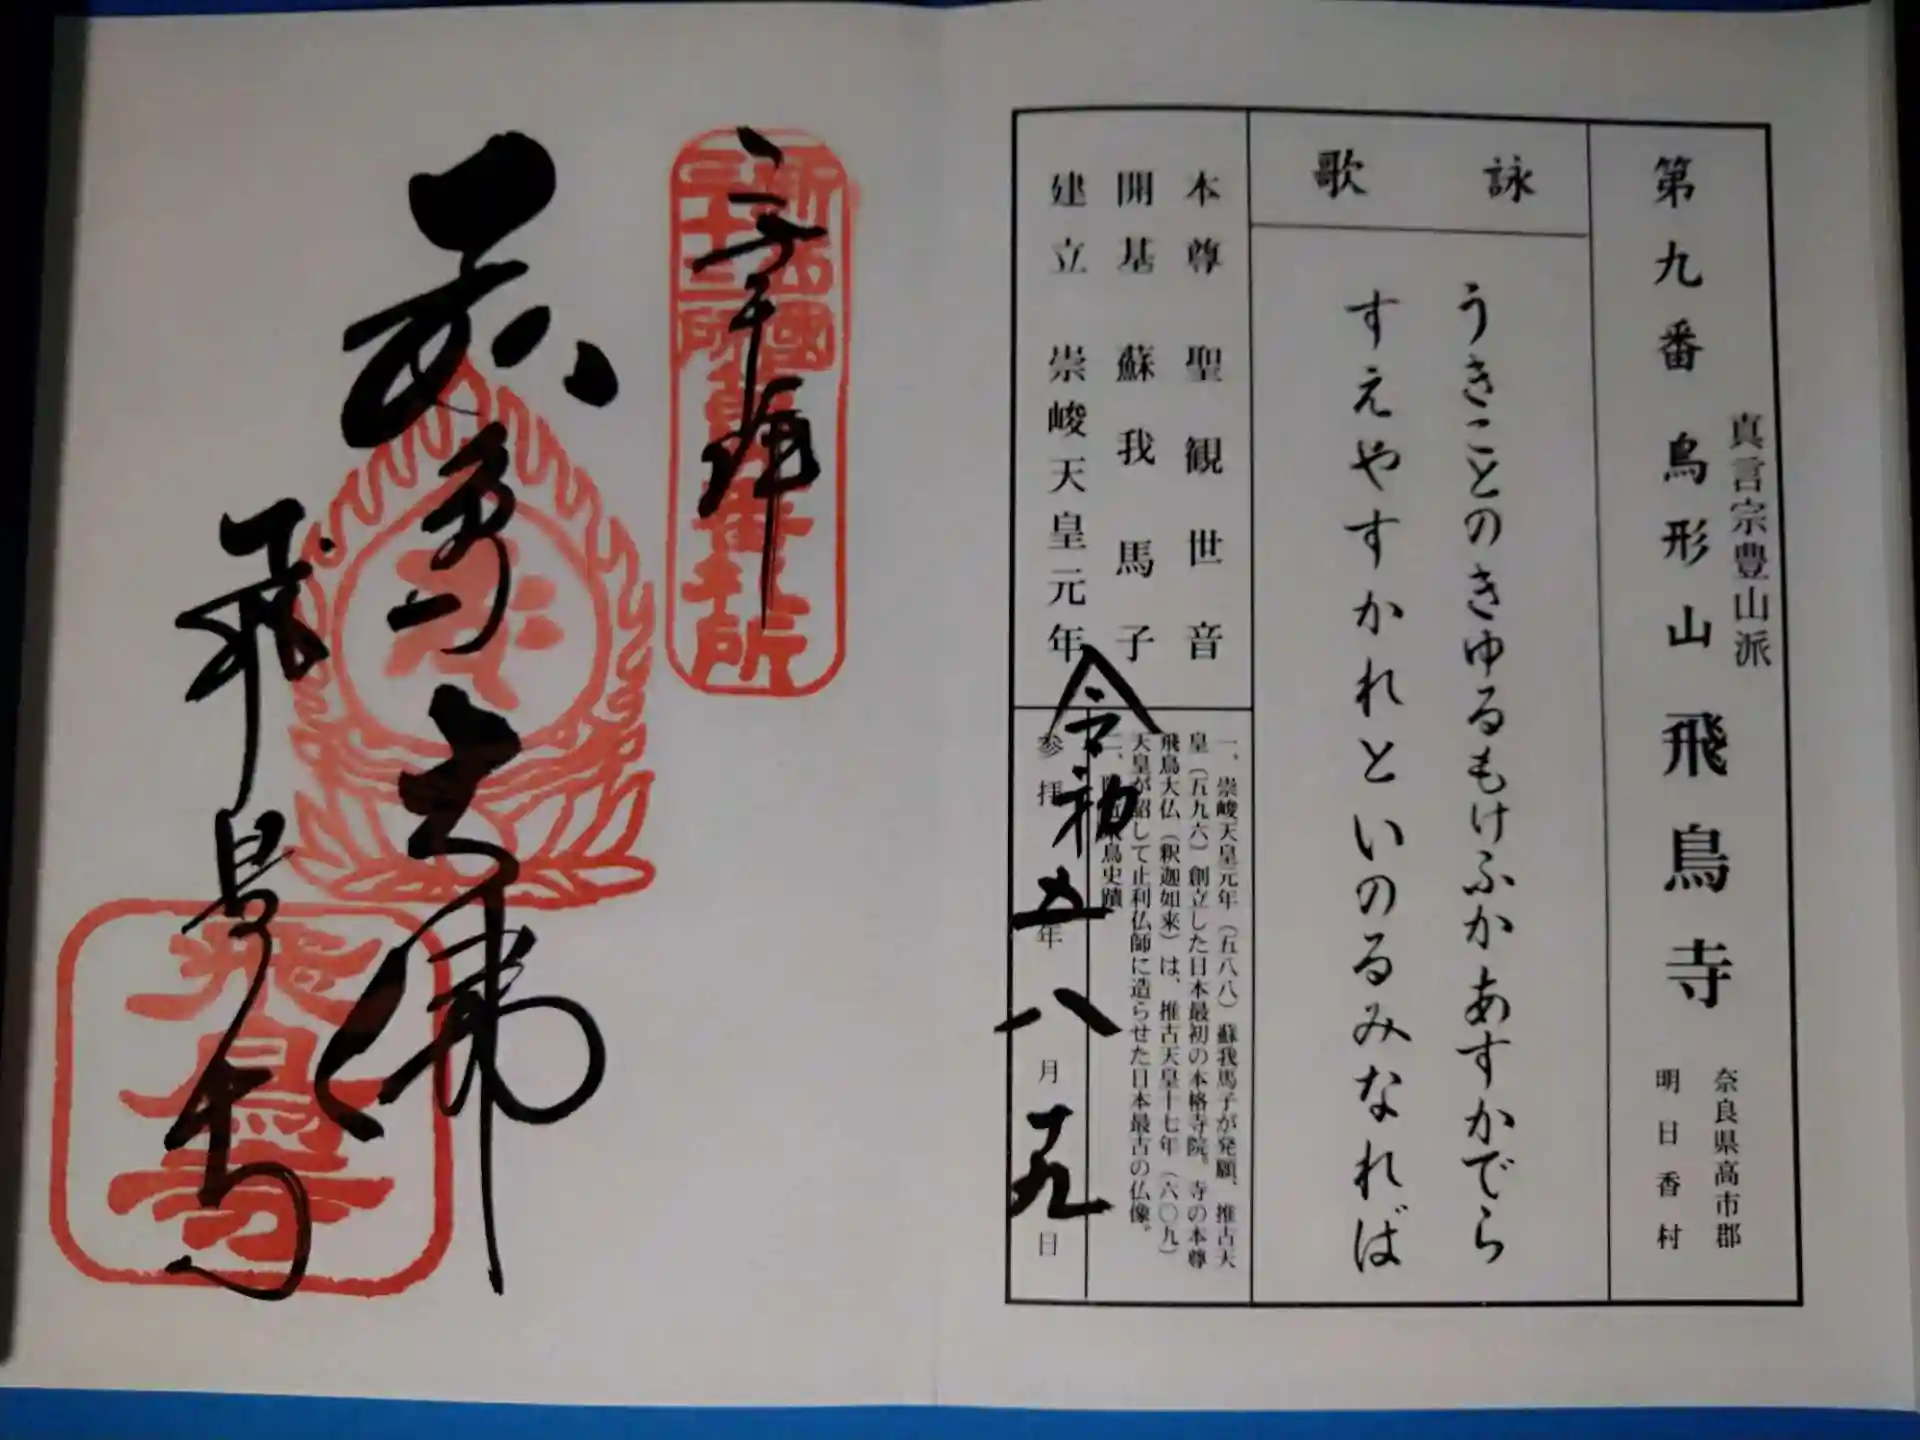 第九番 鳥形山 飛鳥寺
真言宗豊山派
奈良県高市郡
明日香村
詠歌
うきことのきゆるもけふかあすかでら
すえやすかれといのるみなれば
本尊 聖観世音
開基 蘇我馬子
建立 崇峻天皇元年
一、崇峻天皇元年(五八八)蘇我馬子が発願、推古天
皇(五九六)創立した日本最初の本格寺院。寺の本尊
飛鳥大仏(釈迦如来)は、推古天皇十七年(六〇九)
天皇が詔して止利仏師に造らせた日本最古の仏像。
二、飛鳥史蹟
参拝 令和五年八月十九日
奉拝
新西國
三十三所
第九番札所
飛鳥大佛
飛鳥寺
飛鳥寺